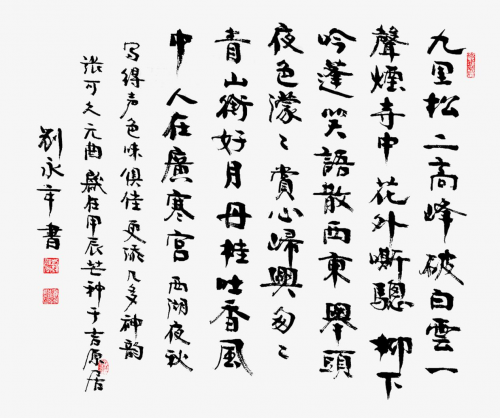 九里松二高峰破白雲一
聲煙寺中花外嘶驄柳下
吟蓬笑語散西東舉頭
夜色濛〻賞心歸興匆〻
青山銜好月丹桂吐香風
中人在廣寒宮 西湖夜秋
写得声色味俱佳更添几多神韵
张可久元曲歲在甲辰芒种于吉原居
劉永年書